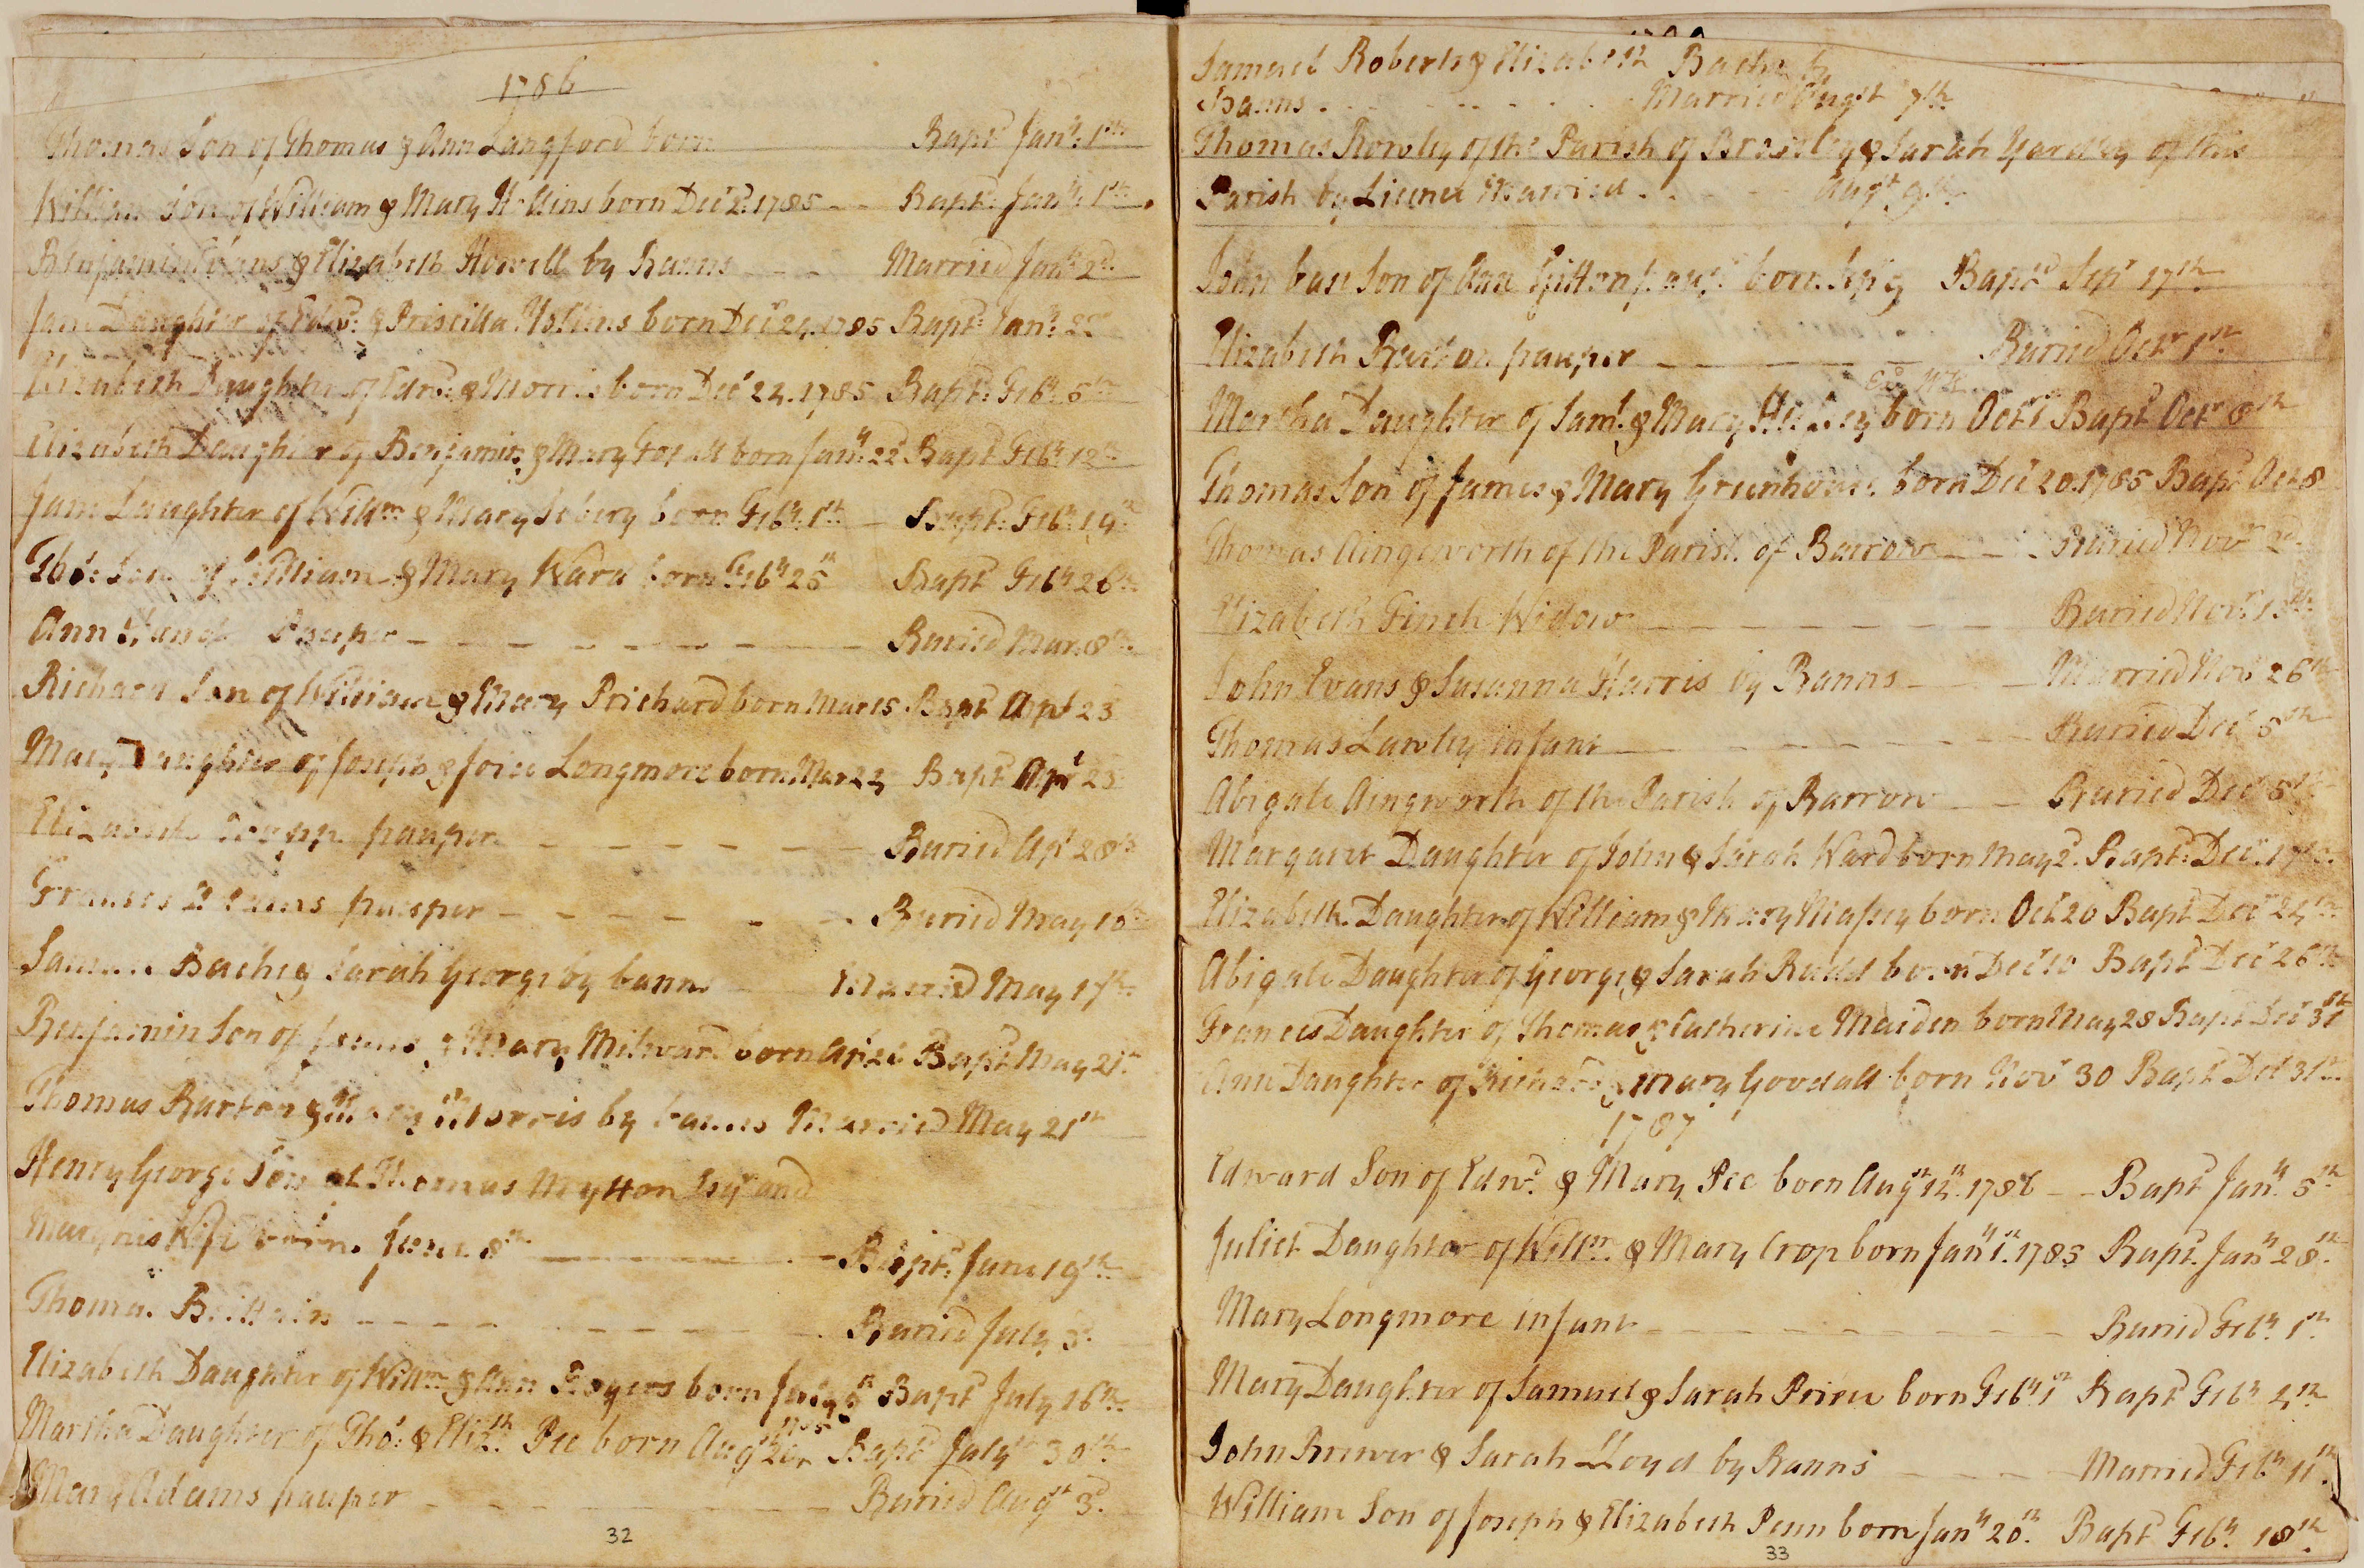 1786
Thomas Son of Thomas & Ann Langford born Bapt.d Jan.y 1st
William Son of William & Mary Hollins born Dec.r 2. 1785 Bapt.d Jan.y 1st
Benjamin Evans & Elizabeth Howell by Banns Married Jan.y 2d
Jane Daughter of Edw.d & Priscilla Hollins born Dec.r 24. 1785 Bapt.d Jan.y 22
Elizabeth Daughter of Edw.d & Morris born Dec.r 24. 1785 Bapt.d Feb.y 5th
Elizabeth Daughter of Benjamin & Mary born Jan.y 22 Bapt.d Feb.y 12th
Jane Daughter of Will.m & Mary born Feb.y 1st Bapt.d Feb.y 19th
Tho.s Son of William & Mary Ward born Feb.y 25th Bapt.d Feb.y 26th
Ann Pauper Buried Mar. 8th
Richard Son of William & Mary Prichard born Mar 15 Bapt.d Apl 23
Mary Daughter of Joseph & Joice Longmore born Mar 24 Bapt.d Apl 23
Elizabeth pauper Buried Apl 28th
Frances pauper Buried May 16th
Bache & Sarah George by banns Married May 17th
Benjamin Son of James & Mary Milward born Apl 26 Bapt.d May 21st
Thomas Burton & Mary Morris by banns Married May 21st
Henry George Son of Thomas Mytton Esqr and
Mary his Wife born June 8th Bapt.d June 19th
Thomas Brittain Buried July 3d
Elizabeth Daughter of Will.m & Ann Rogers born July 9th Bapt.d July 16th
Martha Daughter of Tho.s & Eliz.th Pee born Aug.t 20th 1785 Bapt.d July 30th
Mary Adams pauper Buried Aug.t 3d
32
Samuel Roberts & Elizabeth Bache by
Banns Married Aug.st 7th
Thomas Rowley of the Parish of & Sarah Yardley of this
Parish by Licence Married Aug.t 9th
John base Son of Ann Gitton born Sep. 9 Bapt.d Sepr 17th
Elizabeth Preston pauper Buried Octr 1st
Martha Daughter of Sam.l & Mary born Octr 1 Bapt.d Octr 8th
Thomas Son of James & Mary Greenhouse born Decr 20. 1785 Bapt.d Oct 8
Thomas Aingeworth of the Parish of Barrow Buried Novr 2d
Elizabeth Finch Widow Buried Novr
John Evans & Susanna Harris by Banns Married Novr 26th
Thomas Lawley infant Buried Decr 5th
Abigale Aingworth of the Parish of Barrow Buried Decr 5th
Margaret Daughter of John & Sarah Ward born May 2d Bapt.d Decr 17th
Elizabeth Daughter of William & Mary Massey born Oct 20 Bapt.d Decr 24th
Abigale Daughter of George & Sarah Rudd born Decr 10 Bapt.d Decr 26th
Frances Daughter of Thomas & Catherine Maiden born May 28 Bapt.d Decr 31st
Ann Daughter of Richard & Mary Goodall born Novr 30 Bapt.d Decr 31st
1787
Edward Son of Edw.d & Mary Pee born Aug.st 12th 1786 Bapt.d Jan.y 5th
Juliet Daughter of Will.m & Mary Crop born Jan.y 1st 1785 Bapt.d Jan.y 28th
Mary Longmore infant Buried Feb.y 1st
Mary Daughter of Samuel & Sarah Price born Feb.y 1st Bapt.d Feb.y 4th
John Brewer & Sarah Lloyd by Banns Married Feb.y 11th
William Son of Joseph & Elizabeth Penn born Jan.y 20th Bapt.d Feb.y 18th
33